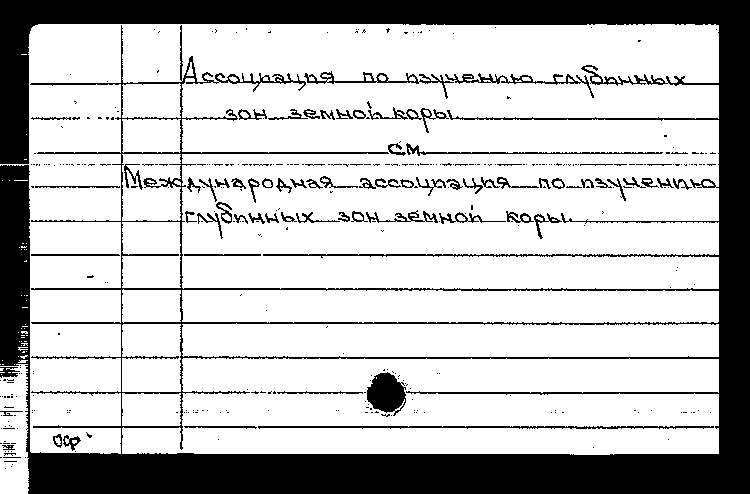 Ассоциация по изучению глубинных
зон земной коры
см.
Международная ассоциация по изучению
глубинных зон земной коры.